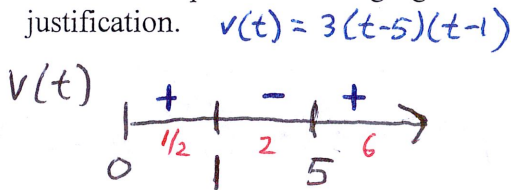 justification. v(t) = 3(t-5)(t-1)
v(t) + - +
1/2 2 6
0 1 5